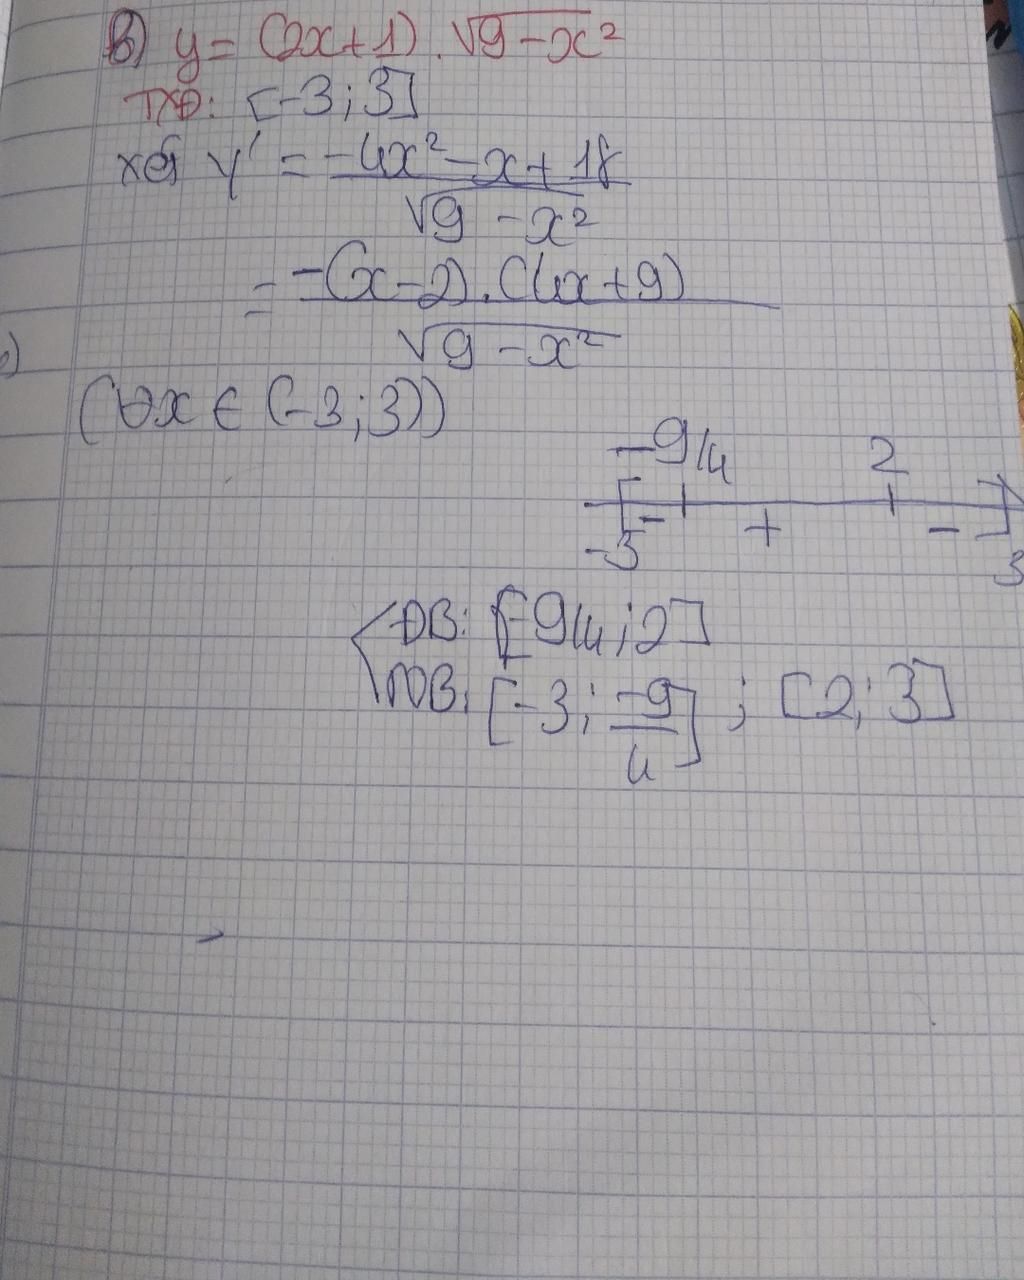 b) y = (2x+1).√9-x²
TXĐ: [-3;3]
xét y' = -4x²-x+18 / √9-x²
= -(x-2).(4x+9) / √9-x²
(∀x ∈ (-3;3))
-9/4 2
- + -
-3 3
ĐB: [-9/4;2]
NB: [-3; -9/4] ; [2;3]